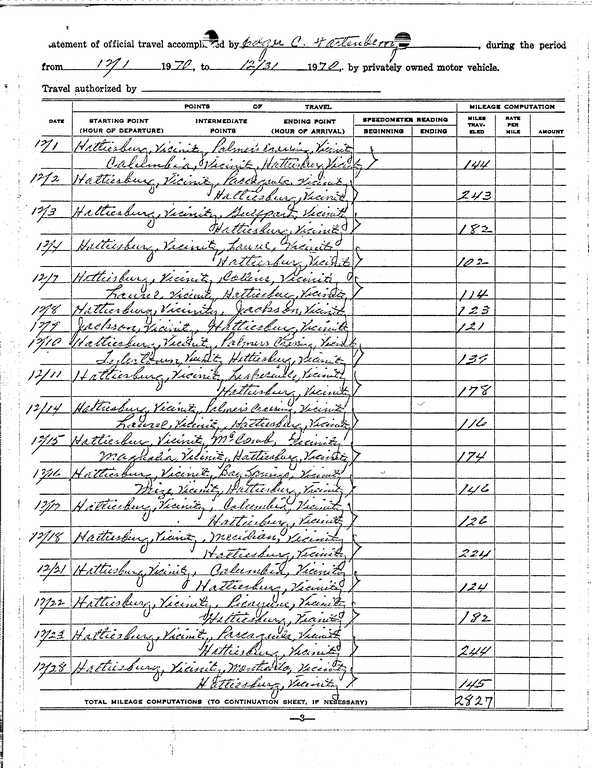 atement of official travel accompl ed by Edgar C. Fortenberry, during the period
from 12/1 1970, to 12/31 1970, by privately owned motor vehicle.
Travel authorized by
POINTS OF TRAVEL MILEAGE COMPUTATION
DATE STARTING POINT (HOUR OF DEPARTURE) INTERMEDIATE POINTS ENDING POINT (HOUR OF ARRIVAL) SPEEDOMETER READING BEGINNING ENDING MILES TRAVELED RATE PER MILE AMOUNT
12/1 Hattiesburg, Vicinity, Palmer's Crossing, Vicinity
Columbia, Vicinity, Hattiesburg, Vicinity 144
12/2 Hattiesburg, Vicinity, Pascagoula, Vicinity
Hattiesburg, Vicinity 243
12/3 Hattiesburg, Vicinity, Gulfport, Vicinity
Hattiesburg, Vicinity 182
12/4 Hattiesburg, Vicinity, Laurel, Vicinity
Hattiesburg, Vicinity 102
12/7 Hattiesburg, Vicinity, Collins, Vicinity
Laurel, Vicinity, Hattiesburg, Vicinity 114
12/8 Hattiesburg, Vicinity, Jackson, Vicinity 123
12/9 Jackson, Vicinity, Hattiesburg, Vicinity 121
12/10 Hattiesburg, Vicinity, Palmers Crossing, Vicinity
Tylertown, Vicinity, Hattiesburg, Vicinity
12/11 Hattiesburg, Vicinity, Leakesville, Vicinity
Hattiesburg, Vicinity 178
12/14 Hattiesburg, Vicinity, Palmer's Crossing, Vicinity
Laurel, Vicinity, Hattiesburg, Vicinity 116
12/15 Hattiesburg, Vicinity, McComb, Vicinity
Magnolia, Vicinity, Hattiesburg, Vicinity 174
12/16 Hattiesburg, Vicinity, Bay Springs, Vicinity
Mize, Vicinity, Hattiesburg, Vicinity 146
12/17 Hattiesburg, Vicinity, Columbia, Vicinity
Hattiesburg, Vicinity 126
12/18 Hattiesburg, Vicinity, Meridian, Vicinity
Hattiesburg, Vicinity 224
12/21 Hattiesburg, Vicinity, Columbia, Vicinity
Hattiesburg, Vicinity 124
12/22 Hattiesburg, Vicinity, Picayune, Vicinity
Hattiesburg, Vicinity 182
12/23 Hattiesburg, Vicinity, Pascagoula, Vicinity
Hattiesburg, Vicinity 244
12/28 Hattiesburg, Vicinity, Monticello, Vicinity
Hattiesburg, Vicinity 145
TOTAL MILEAGE COMPUTATIONS (TO CONTINUATION SHEET, IF NECESSARY) 2827
—3—